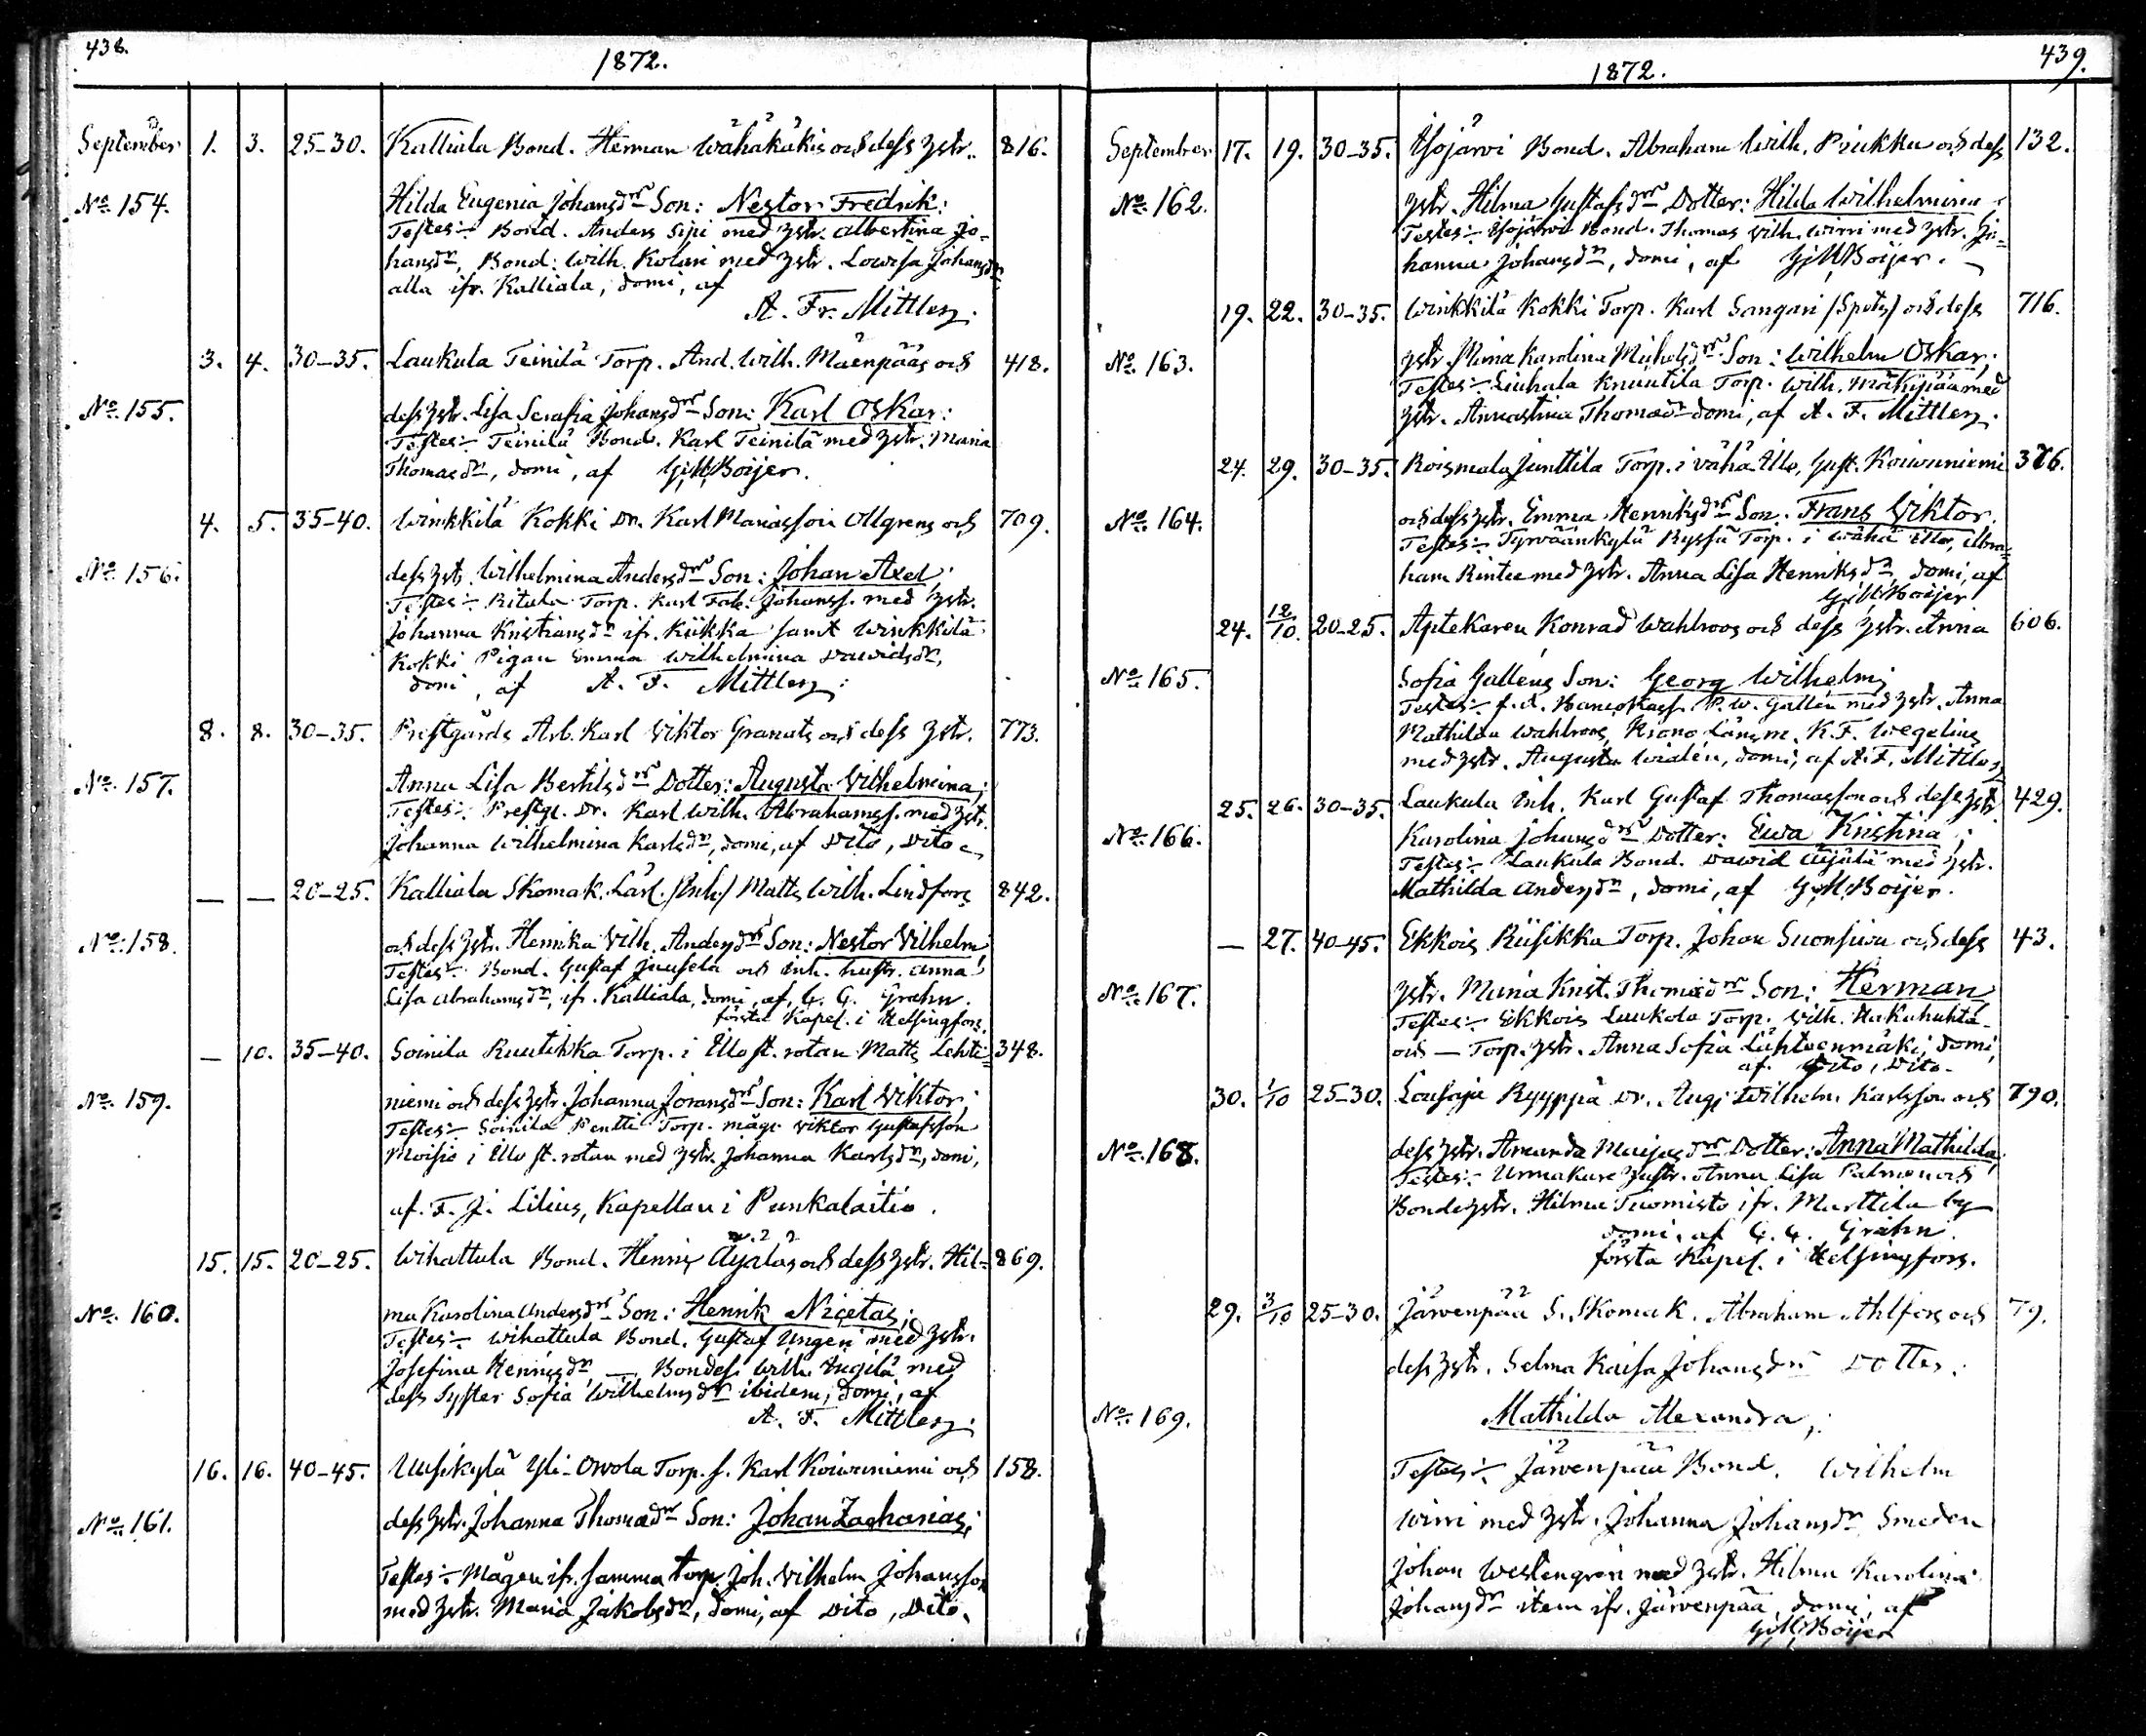 438.
1872.
September 1. 3. 25-30. Kalliala Bond. Herman Wähäkäkis och dess hstr. 816.
No 154. Hilda Eugenia Johansdr Son: Nestor Fredrik:
Testes:- Bond. Anders Sipi med hstr. Albertina Jo-
hansdr, Bond: Wilh. Kolari med hstr. Lowisa Johansdr
alla ifr. Kalliala, domi, af
A. Fr. Mittler;
3. 4. 30-35. Laukula Teinilä Torp. And. Wilh. Mäenpääs och 418.
No 155. dess hstr. Lisa Serafia Johansdr Son: Karl Oskar:
Testes:- Teinilä Bond. Karl Teinilä med hstr. Maria
Thomasdr, domi, af G. W. Boijer.
4. 5. 35-40. Winkkilä Kokki Dr. Karl Mariasson Ollgrens och 709.
No 156. dess hstr. Wilhelmina Andersdr Son: Johan Axel;
Testes:- Ritala Torp. Karl Fab. Johanss. med hstr.
Johanna Kristiansdr ifr. Kiikka samt Winkkilä
Kokki Pigan Emma Wilhelmina Dawidsdr,
domi, af A. F. Mittler;
8. 8. 30-35. Prestgårds Arb. Karl Viktor Granats och dess hstr. 773.
No 157. Anna Lisa Bertilsdr Dotter: Augusta Vilhelmina;
Testes:- Prestg. Dr. Karl Wilh. Abrahamss. med hstr.
Johanna Wilhelmina Karlsdr, domi, af Dito, Dito
— — 20-25. Kalliala Skomak. Lärl. /Inh./ Matts Wilh. Lindfors 842.
No 158. och dess hstr. Henrika Vilh. Andersdr Son: Nestor Vilhelm
Testes:- Bond. Gustaf Juusela och Inh. hustr. Anna
Lisa Abrahamsdr, ifr. Kalliala, domi, af, G. G. Grahn.
första Kapel. i Helsingfors.
— 10. 35-40. Soinila Ruutikka Torp. i Illo st. rotan Matts Lehti= 348.
No 159. niemi och dess hstr. Johanna Joransdr Son: Karl Viktor;
Testes:- Soinila Pentti Torp. måg. Viktor Gustafsson
Moisio i Illo st. rotan med hstr. Johanna Karlsdr, domi,
af. F. J. Lilius, Kapellan i Punkalaitio.
15. 15. 20-25. Wihattula Bond. Henrik Äijälas och dess hstr. Hil= 869.
No 160. ma Karolina Andersdr Son: Henrik Nicetas;
Testes:- Wihattula Bond. Gustaf Ungeri med hstr.
Josefina Henriksdr, — Bondes. Wilh. Knuutila med
dess Syster Sofia Wilhelmsdr ibidem, domi, af
A. F. Mittler;
16. 16. 40-45. Uusikylä Yli-Orvola Torp. s. Karl Koivuniemi och 158.
No 161. dess hstr. Johanna Thomædr Son: Johan Zacharias;
Testes:- Mågen ifr. samma torp. Joh. Vilhelm Johansson
med hstr. Maria Jakobsdr, domi, af Dito, Dito.
439.
1872.
September 17. 19. 30-35. Isojärvi Bond. Abraham Wilh. Piukku och dess 132.
No 162. hstr. Hilma Gustafsdr Dotter: Hilda Wilhelmina
Testes:- Isojärvi Bond. Thomas Vilh. Wirri med hstr. Jo=
hanna Johansdr, domi, af G. W. Boijer.
19. 22. 30-35. Winkkilä Kokki Torp. Karl Sangari /Spets/ och dess 716.
No 163. hstr. Mina Karolina Michelsdr Son: Wilhelm Oskar;
Testes:- Liuhala Knuutila Torp. Wilh. Mäkipää med
hstr. Annastina Thomædr domi, af A. F. Mittler;
24. 29. 30-35. Roismala Junttila Torp. i Vähä Illo, Gust. Koivuniemi 376.
No 164. och dess hstr. Emma Henriksdr Son: Frans Viktor.
Testes:- Tyrväänkylä Ryssä Torp. i Wähä Illo, Abra=
ham Rintee med hstr. Anna Lisa Henriksdr, domi, af
G. W. Boijer
24. 12/10. 20-25. Aptekaren Konrad Wahlroos och dess hstr. Anna 606.
No 165. Sofia Galléns Son: Georg Wilhelm;
Testes:- f. d. Bancokass. P. W. Gallén med hstr. Anna
Mathilda Wahlroos, Krono Länsm. K. F. Wegelius
med hstr. Augusta Widén, domi, af A. F. Mittler;
25. 26. 30-35. Laukula Inh. Karl Gustaf Thomasson och dess hstr 429.
No 166. Karolina Johansdr Dotter: Ewa Kristina;
Testes:- Laukula Bond. Dawid Äijälä med hstr.
Mathilda Andersdr, domi, af G. W. Boijer.
— 27. 40-45. Ekkois Riisikka Torp. Johan Suonsivu och dess 43.
No 167. hstr. Maria Krist. Thomædr Son: Herman
Testes:- Ekkois Luukola Torp. Vilh. Hakuhuhta
och — Torp. hstr. Anna Sofia Lähteenmäki, domi,
af. Dito, Dito.
30. 1/10 25-30. Lousaja Ryyppä Dr. Aug. Wilhelm Karlsson och 790.
No 168. dess hstr. Amanda Maijasdr Dotter: Anna Mathilda;
Testes:- Urmakare hustr. Anna Lisa Palmen och
Bonde hstr. Hilma Tuomisto ifr. Marttila by
domi, af G. G. Grahn.
första Kapel. i Helsingfors.
29. 3/10 25-30. Järvenpää S. Skomak. Abraham Ahlfors och 79.
dess hstr. Selma Kaisa Johansdr Dotter:
No 169. Mathilda Alexandra;
Testes:- Järvenpää Bond. Wilhelm
Wirri med hstr. Johanna Johansdr, Smeden
Johan Westengren med hstr. Hilma Karolina
Johansdr item ifr. Järvenpää, domi, af
G. W. Boijer